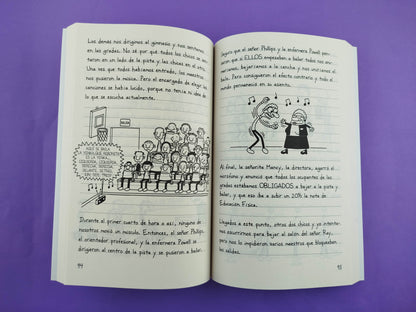 Los demás nos dirigimos al gimnasio y nos sentamos
en las gradas. No sé por qué, todos los chicos se
sentaron en un lado de la pista y las chicas en el otro.
Una vez que todos habíamos entrado, los maestros
nos pusieron la música. Pero el encargado de elegir las
canciones se había lucido, porque no tenía ni idea de
lo que se escucha actualmente.
AQUÍ SE BAILA
LA TEMBLEQUE REMOVIDA
ES LA MOVIDA.
IZQUIERDA, IZQUIERDA,
DERECHA, DERECHA,
DELANTE, DETRÁS,
UN DOS, TRES.
Durante el primer cuarto de hora o así, ninguno de
nosotros movió un músculo. Entonces, el señor Phillips,
el orientador profesional, y la enfermera Powell se
dirigieron al centro de la pista y se pusieron a bailar.
94
Supongo que el señor Phillips y la enfermera Powell pensaron
que si ELLOS empezaban a bailar, todos nos
animaríamos, bajaríamos a la cancha y nos uniríamos al
baile. Pero consiguieron el efecto contrario y todo el
mundo permaneció en su asiento.
Al final, la señorita Mancy, la directora, agarró el
micrófono y anunció que todos los ocupantes de las
gradas estábamos OBLIGADOS a bajar a la pista y
bailar, y que eso iba a subir un 20% la nota de
Educación Física.
Llegados a este punto, otros dos chicos y yo intentamos
escurrirnos para bajar al salón del señor Ray,
pero nos lo impidieron varios maestros que bloqueaban
las salidas.
95